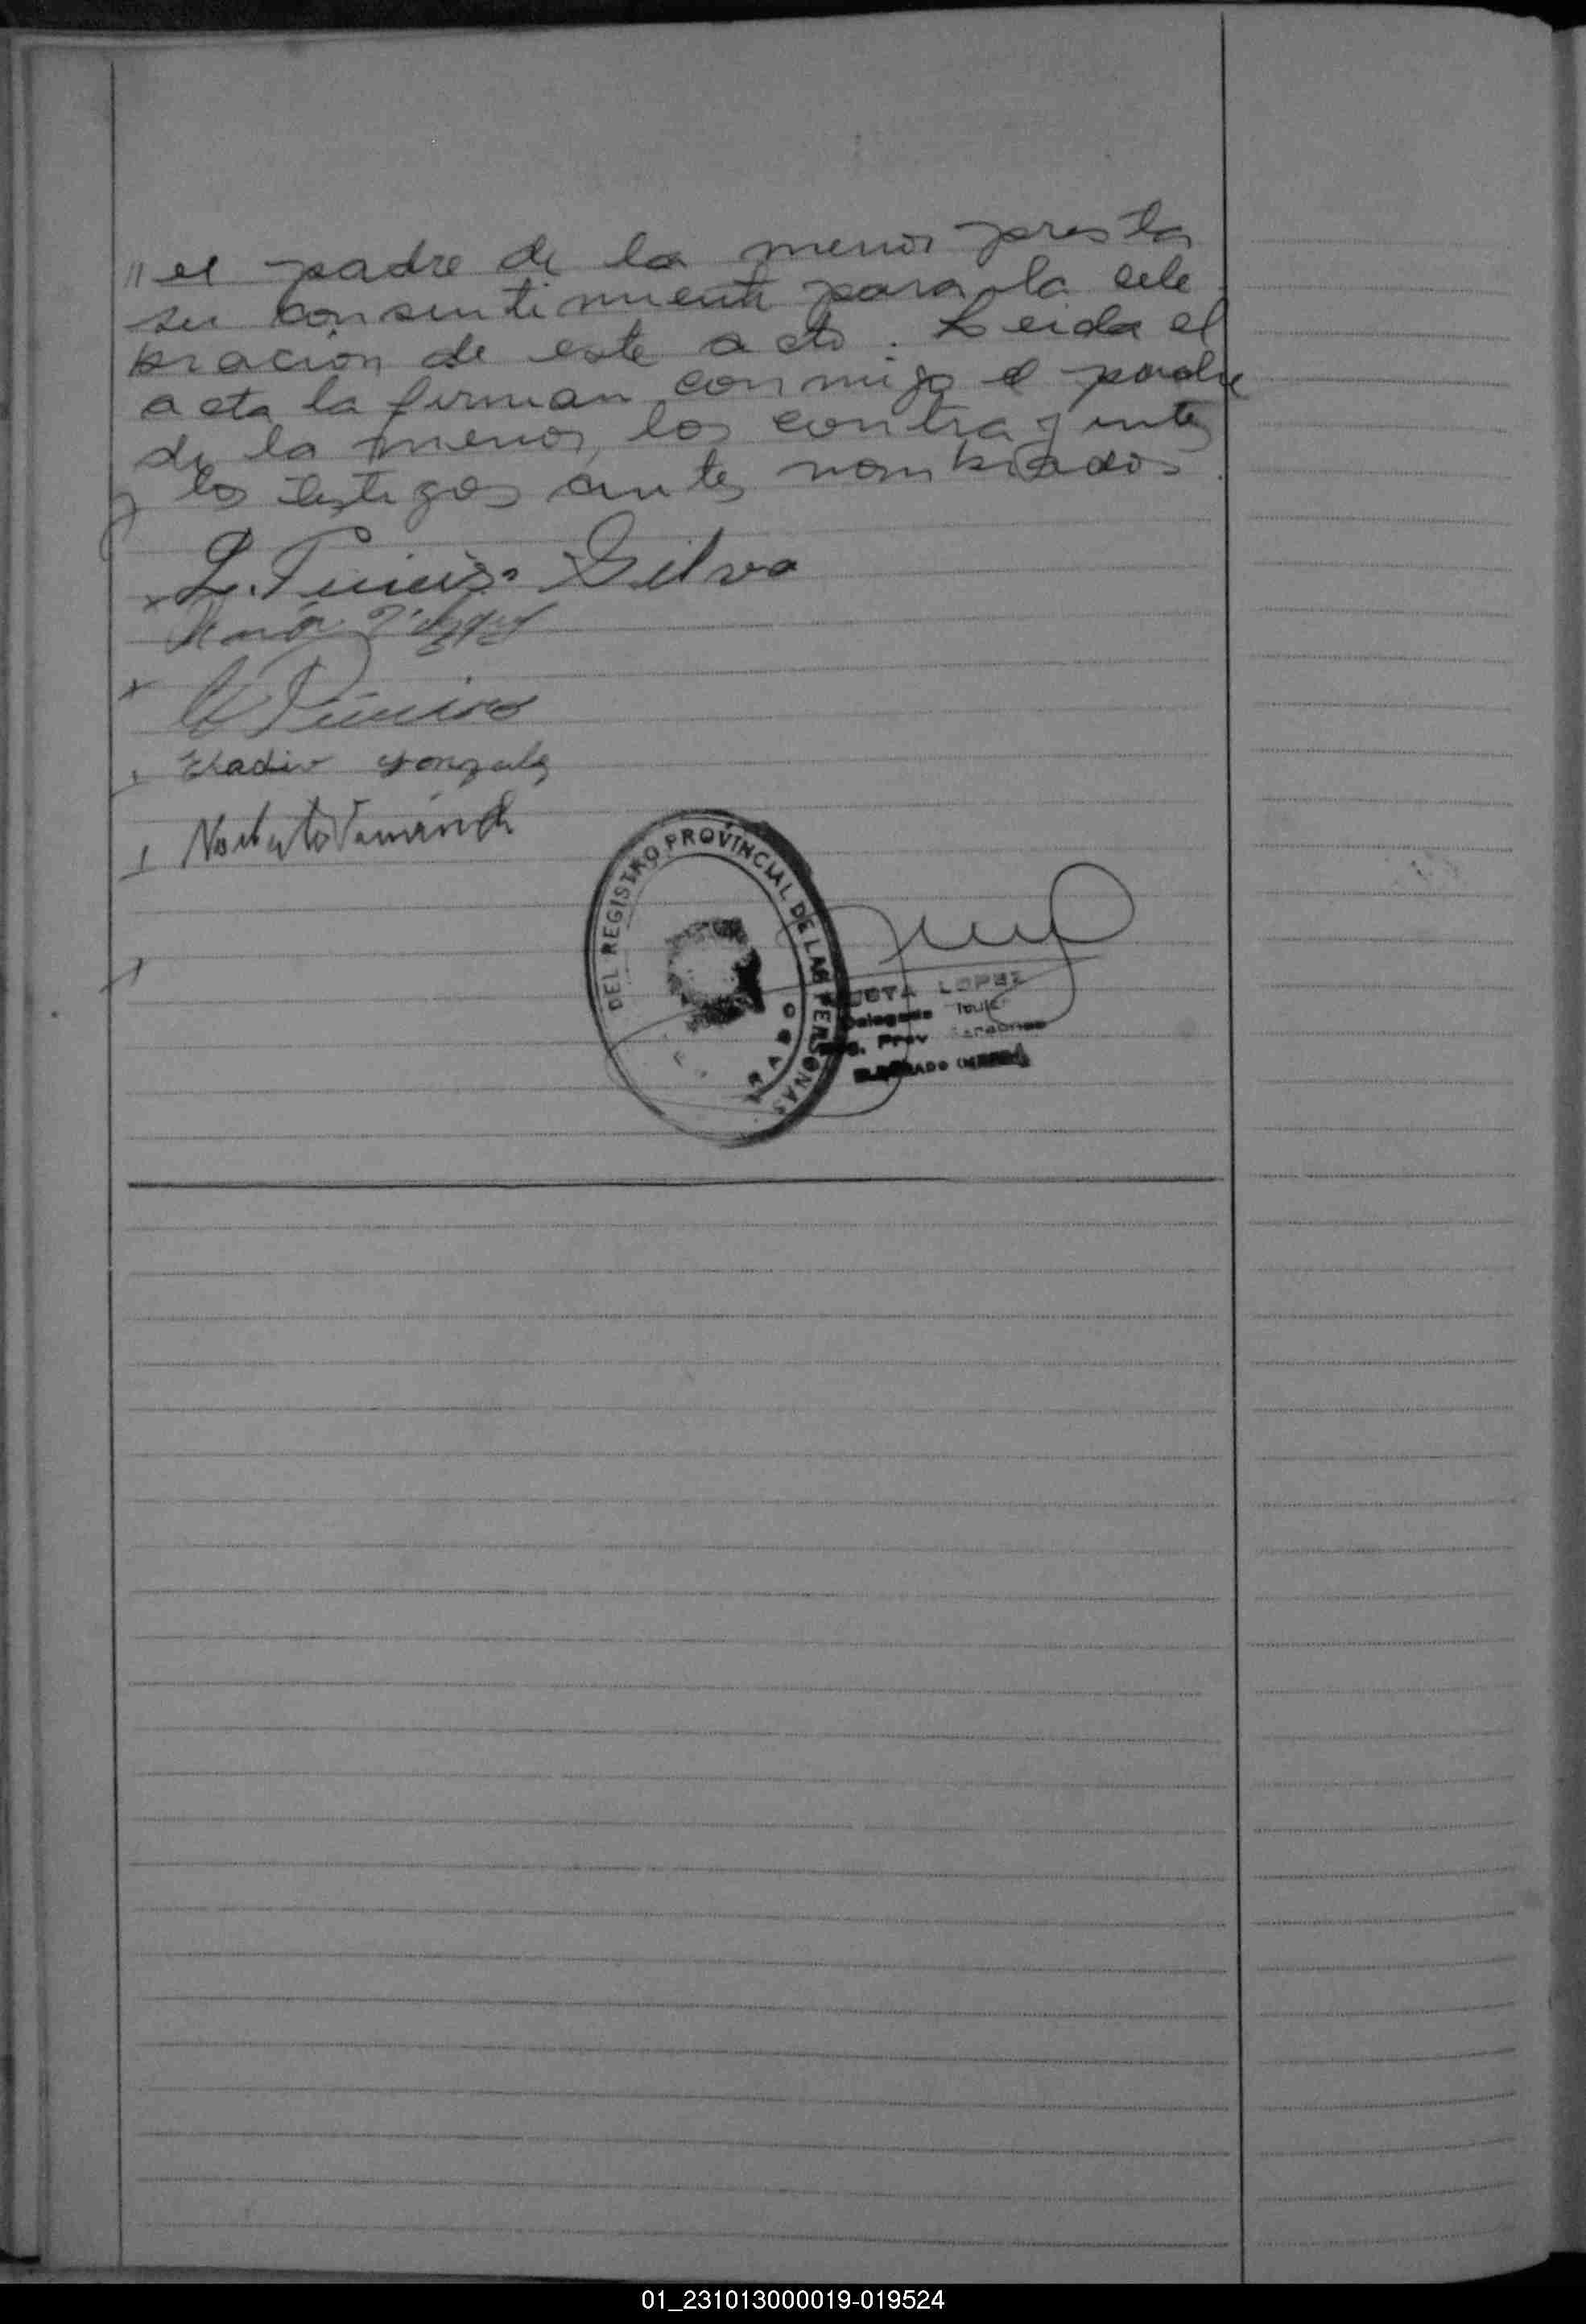 // el padre de la menor presta
su consentimiento para la cele
bración de este acto. Leida el
acta la firman conmigo el padre
de la menor, los contrayentes
y los testigos antes nombrados.
Silva
Eladio Gonzalez
DEL REGISTRO PROVINCIAL DE LAS PERSONAS
LOPEZ
Delegada Titular
Reg. Prov. Personas
01_231013000019-019524